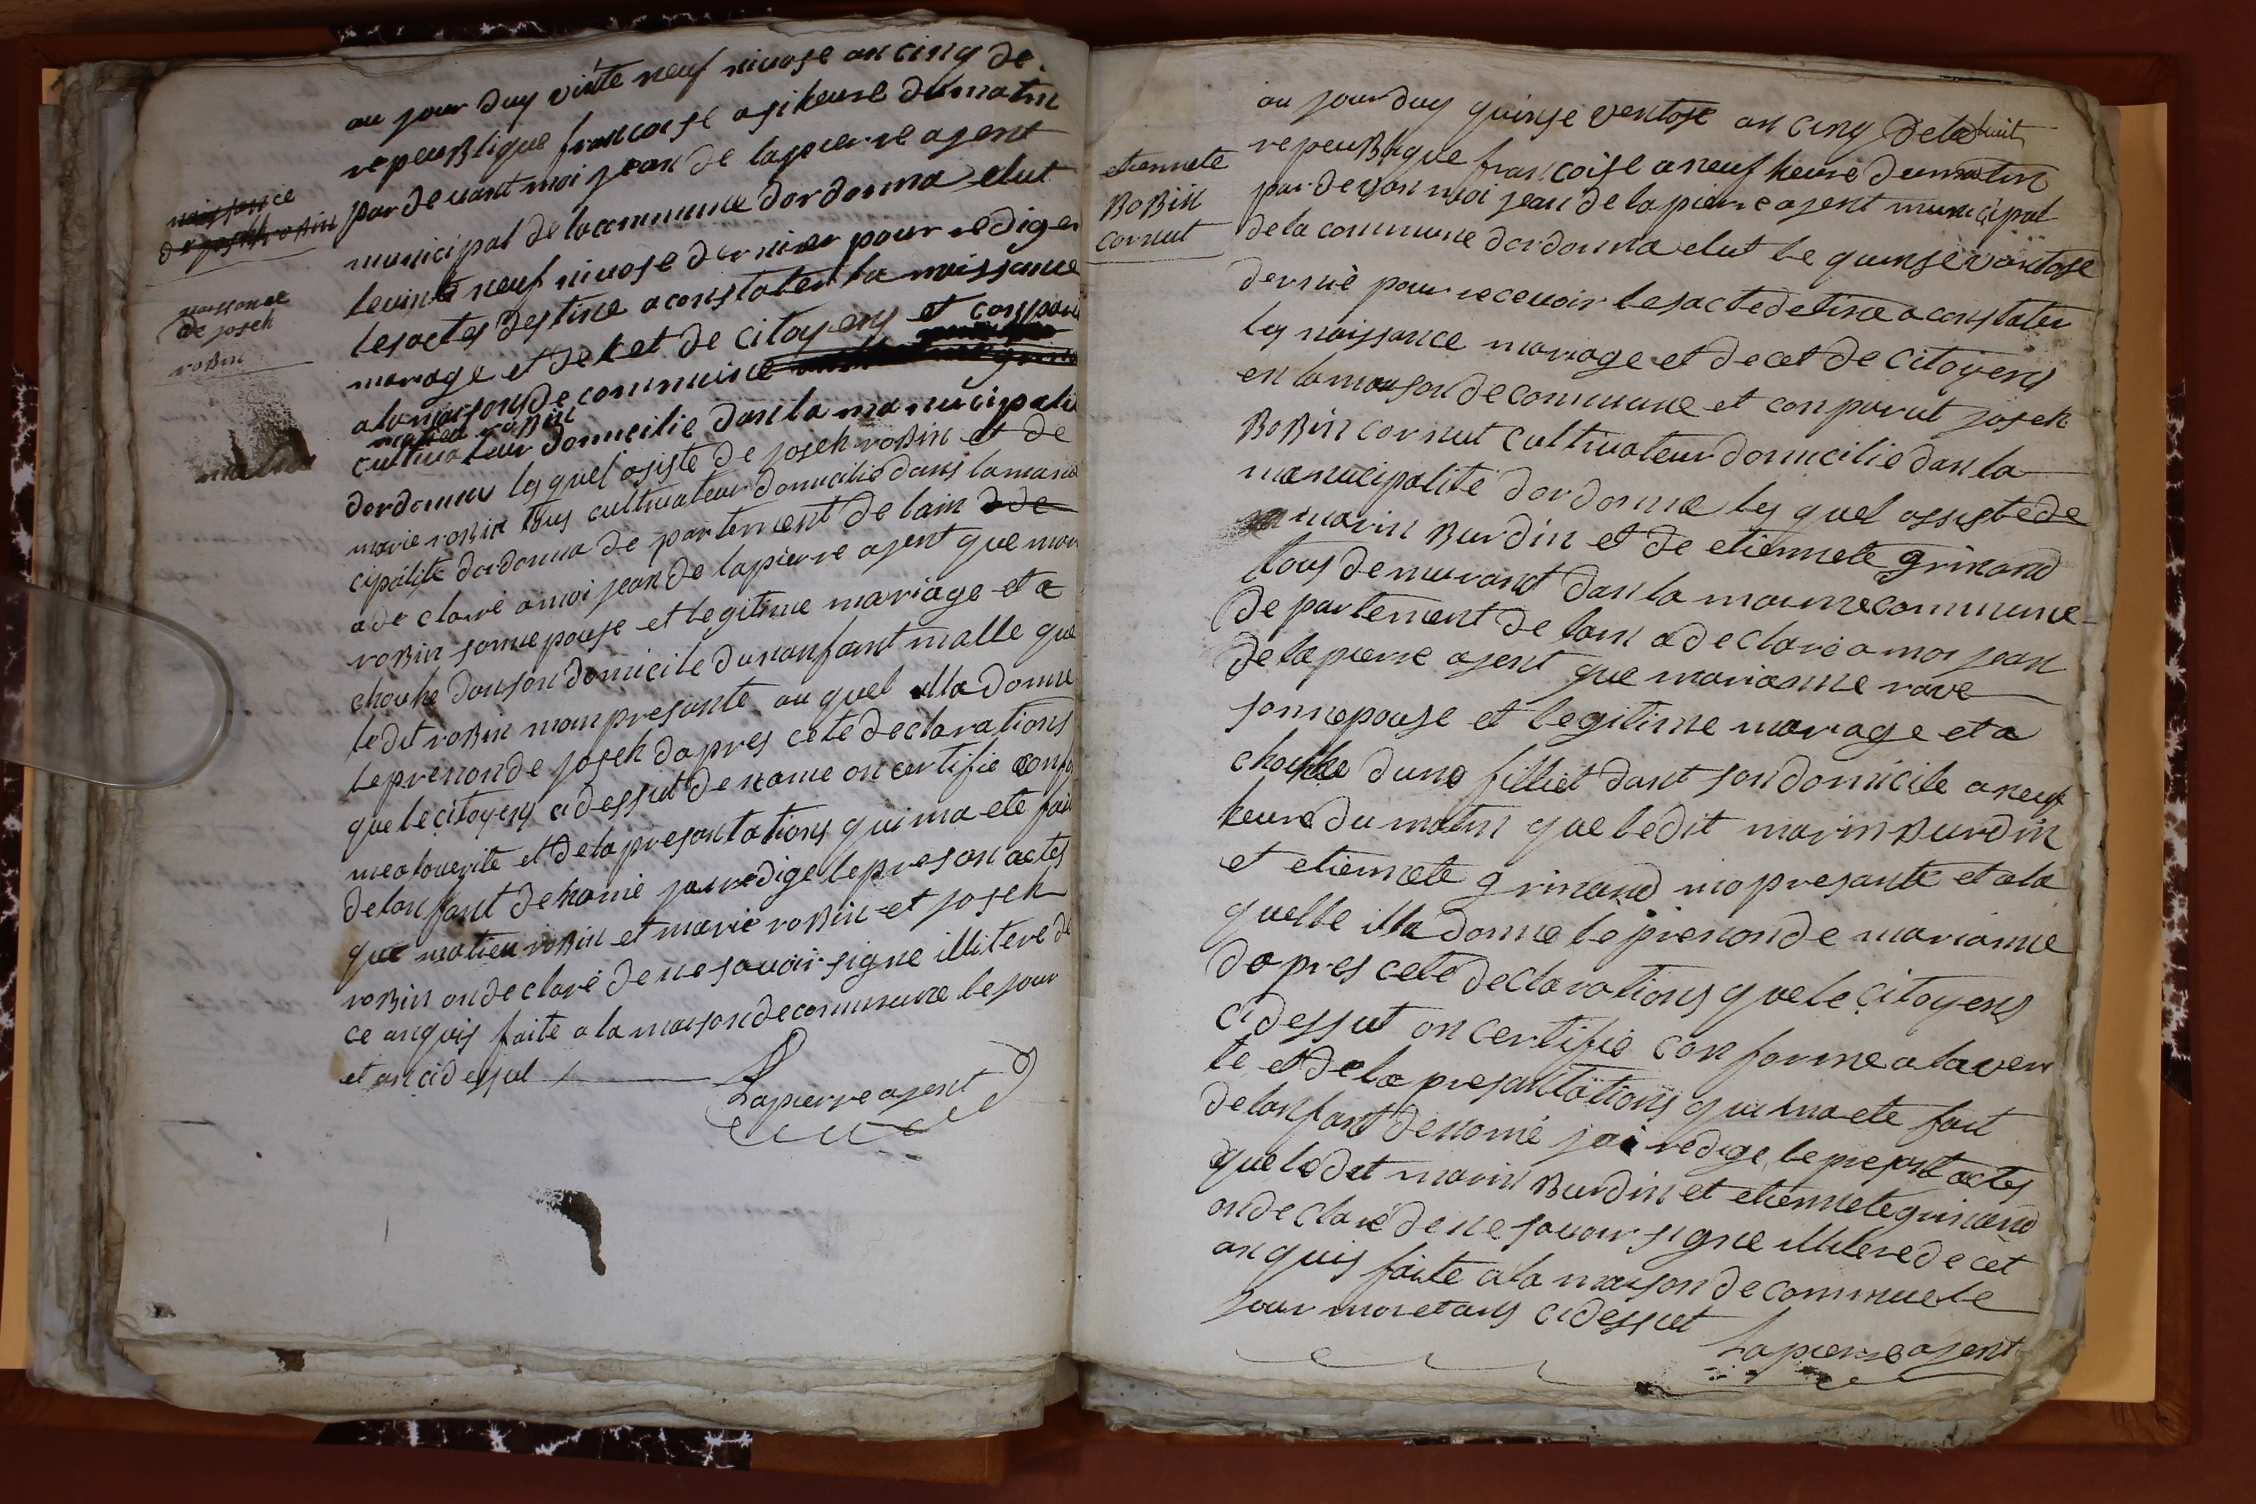 naissance
de joseph robin
naissance
de joseh
robin
au jour duy vinte neuf nivose an cinq de
repeublique francoise a si heure du matin
par devant moi jean de lapierre agent
municipal de la commune dordonna elut
le vinte neuf nivose dernier pour rediger
les actes destine a constater la naissance
mariage et deket de citoyens et conparu
a la maisons de commune
matieu robin
cultivateur domicilie dan la manucipalit
dordonna les quel asiste de joseh robin et de
marie robin tous cultivateur domicilie dans la manu
cipalite dordonna de partement de lain
a de clare a moi jean de lapierre agent que mari
robin sonne pouse et legitime mariage et a
chouhe dan son domicile dunanfant malle que
ledit robin moin presante au quel illa donne
le prenon de joseh dapres cete declarations
que le citoyens cidessut denome on certifie confor
me a laverite et de la presantations qui ma ete fait
de lanfant denomé jai redige le presan actes
que matieu robin et marie robin et joseh
robin on de claré de ne savoir signe illitere de
ce anquis faite a la maison de commune le jour
et an cidessut
Lapierre agent
etiennete
Bobin
cornut
au jour duy quinse ventose an cinq de la
huit
repeublique francoise a neuf heure du matin
par devan moi jean de lapierre agent municipal
de la commune dordonna elut le quinse vantose
dernié pour recevoir les acte detine a constater
les naissance mariage et decet de citoyens
en la maison de commune et conparut joseh
Bobin cornut cultivateur domicilie dan la
manucipalite dordonna les quel assiste de
marin Burdin et de etiennete grinand
tous demurant dan la maime commune
de partement de lain a declare a moi jean
de lapierre agent que marianne rave
sonne pouse et legitime mariage et a
chouhe dune filliet dant son domicile a neuf
heure du matin que le dit marin Burdin
et etiennete grinand mo presante et a la
quelle illa donne le prenon de marianne
dapres cete declarations que le citoyens
cidessut on certifie conforme a laveri
te et de la presantations qui ma ete fait
de lanfant denomé jai redige le presant actes
que le dit marin Burdin et etiennete grinand
on de claré de ne savoir signe illitere de cet
anquis faite a la maison de commune le
jour mois et ans cidessut
Lapierre agent